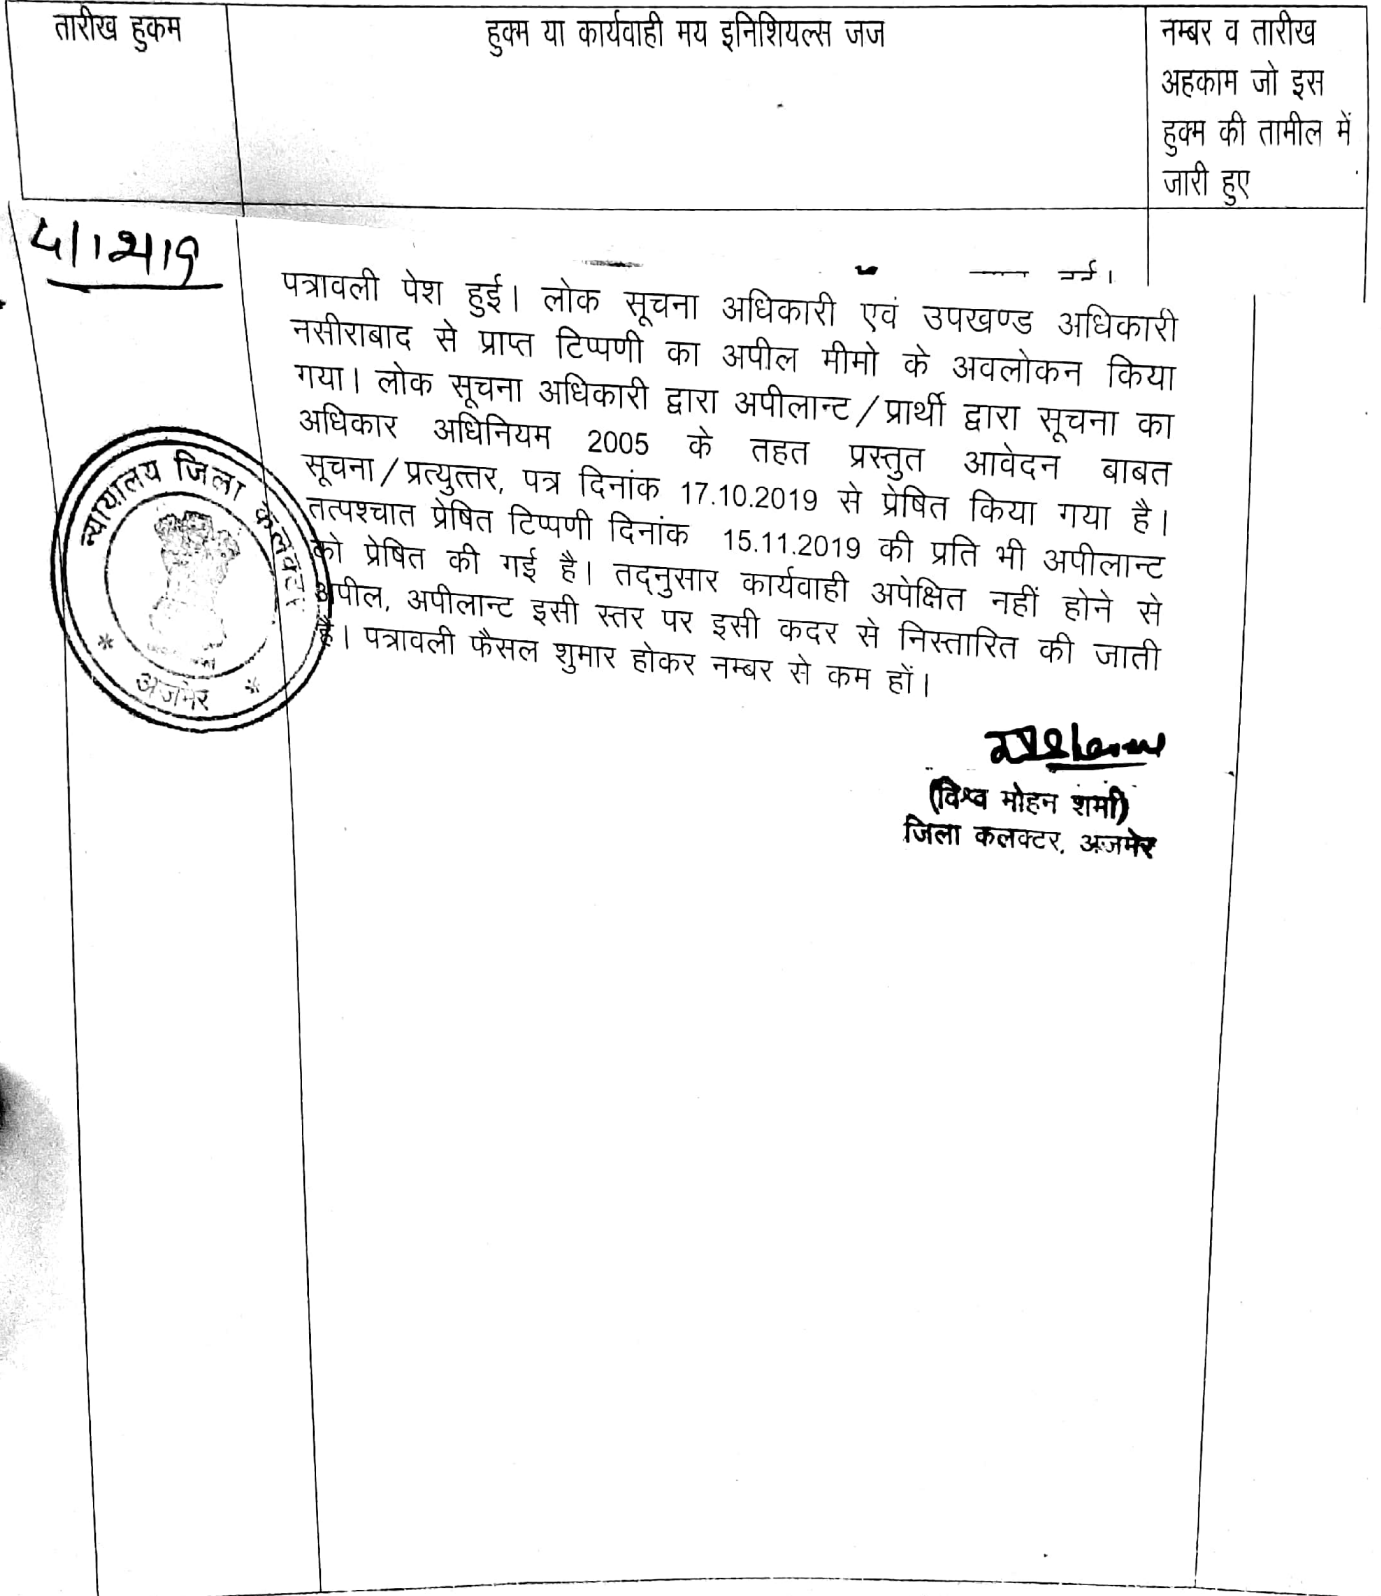 तारीख हुकम
हुक्म या कार्यवाही मय इनिशियल्स जज
नम्बर व तारीख
अहकाम जो इस
हुक्म की तामील में
जारी हुए
पत्रावली पेश हुई। लोक सूचना अधिकारी एवं उपखण्ड अधिकारी
नसीराबाद से प्राप्त टिप्पणी का अपील मीमो के अवलोकन किया
गया। लोक सूचना अधिकारी द्वारा अपीलान्ट/प्रार्थी द्वारा सूचना का
अधिकार अधिनियम 2005 के तहत प्रस्तुत आवेदन बाबत
सूचना/प्रत्युत्तर, पत्र दिनांक 17.10.2019 से प्रेषित किया गया है।
तत्पश्चात प्रेषित टिप्पणी दिनांक 15.11.2019 की प्रति भी अपीलान्ट
को प्रेषित की गई है। तद्नुसार कार्यवाही अपेक्षित नहीं होने से
अपील, अपीलान्ट इसी स्तर पर इसी कदर से निस्तारित की जाती
है। पत्रावली फैसल शुमार होकर नम्बर से कम हों।
न्यायालय जिला कलक्टर
* अजमेर *
(विश्व मोहन शर्मा)
जिला कलक्टर, अजमेर